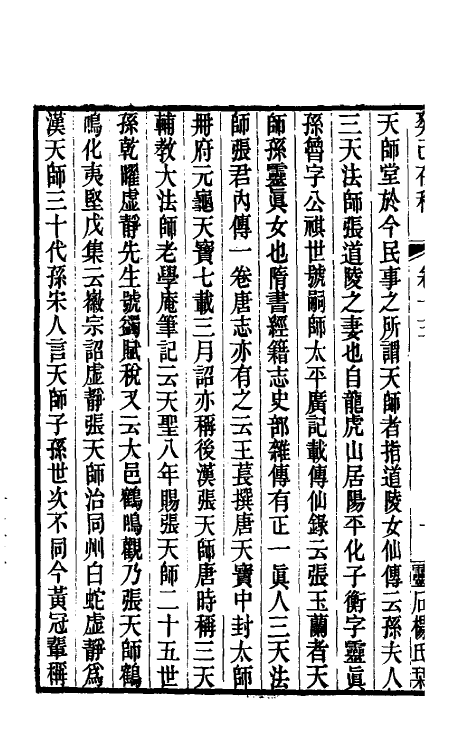 癸巳存稿 卷十三 靈石楊氏栞
天師堂於今民事之所謂天師者指道陵女仙傳云孫夫人
三天法師張道陵之妻也自龍虎山居陽平化子衡字靈眞
孫魯字公祺世號嗣師太平廣記載傳仙錄云張玉蘭者天
師孫靈眞女也隋書經籍志史部雜傳有正一眞人三天法
師張君內傳一卷唐志亦有之云王萇撰唐天寶中封太師
冊府元龜天寶七載三月詔亦稱後漢張天師唐時稱三天
輔教大法師老學庵筆記云天聖八年賜張天師二十五世
孫乾曜虛靜先生號蠲賦稅又云大邑鶴鳴觀乃張天師鶴
鳴化夷堅戊集云徽宗詔虛靜張天師治同州白蛇虛靜爲
漢天師三十代孫宋人言天師子孫世次不同今黃冠輩稱